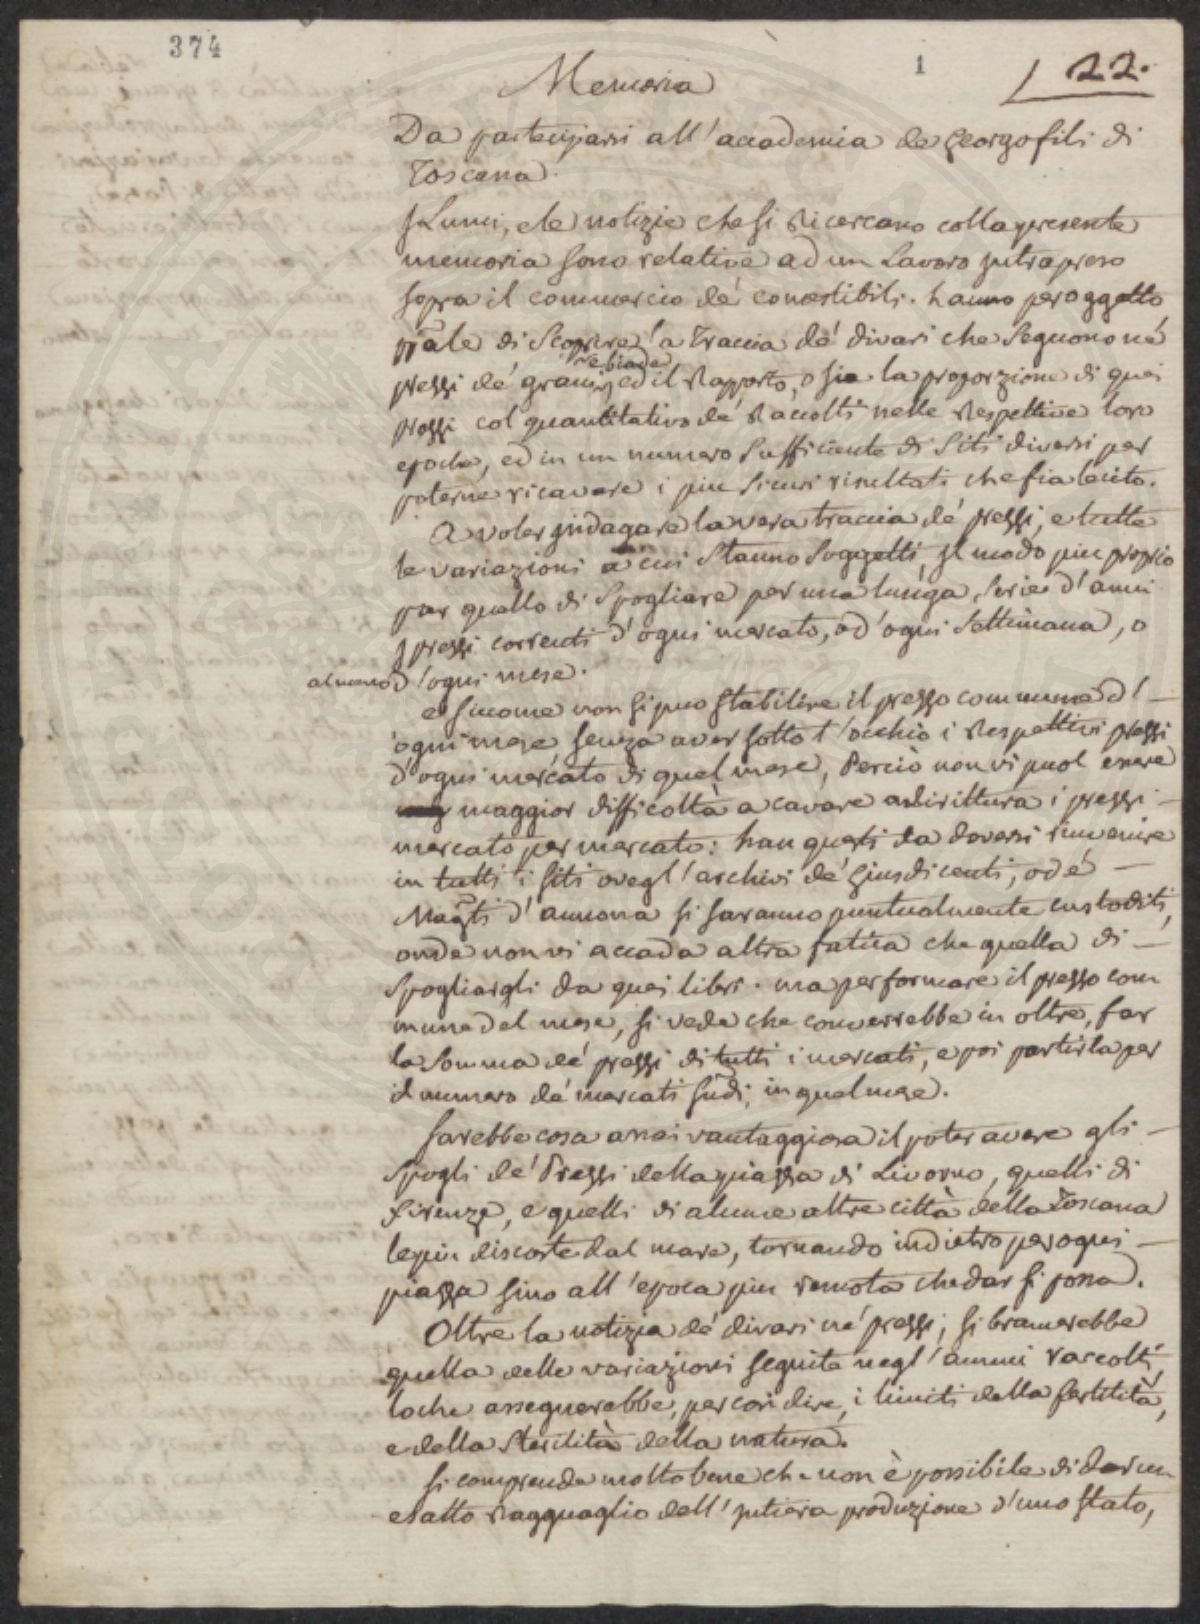 374
1
22.
Memoria
Da partecipari all'accademia de Georgofili di
Toscana.
I Lumi, e le notizie che si Ricercano colla presente
memoria sono relative ad un Lavoro intrapreso
sopra il commercio de' comestibili. hanno per oggetto
pñale di Scoprire la Traccia de' divari che Seguono ne'
prezzi de' grani, e biade ed il Rapporto, o sia la proporzione di quei
prezzi col quantitativo de' Raccolti nelle Respettive loro
epoche, ed in un numero Sufficiente di Siti diversi per
poterne ricavare i piu Sicuri risultati che fia lecito.
A voler indagare la vera traccia de' prezzi, e tutte
le variazioni a cui Stanno Soggetti, il modo piu proprio
par quello di Spogliare per una lunga Serie d'anni
i prezzi correnti d'ogni mercato, od'ogni Settimana, o
almeno d'ogni mese.
e siccome non si puo stabilire il prezzo commune d'
ogni mese senza aver sotto l'occhio i Respettivi prezzi
d'ogni mercato di quel mese, Perciò non vi puol essere
maggior difficoltà a cavare addirittura i prezzi
mercato per mercato: han questi da doversi rinvenire
in tutti i siti ove gl'archivi de' Giusdicenti, od e'
Magti d'annona si saranno puntualmente custoditi,
onde non vi accada altra fatica che quella di
Spogliargli da quei libri. ma per formare il prezzo com
mune del mese, si vede che converrebbe in oltre, far
la Somma de' prezzi di tutti i mercati, e poi partirla per
il numero de' mercati sudi. in quel mese.
Sarebbe cosa assai vantaggiosa il poter avere gli
Spogli de' Prezzi della piazza di Livorno, quelli di
firenze, e quelli di alcune altre città della Toscana
le piu discoste dal mare, tornando indietro per ogni
piazza sino all'epoca piu remota che dar si possa.
Oltre la notizia de' divari ne' prezzi, si bramerebbe
quella delle variazioni seguite negl'annui raccolti,
loche assegnerebbe, per cosi dire, i limiti della fertilità,
e della Sterilità della natura.
Si comprende molto bene che non è possibile di dar un
esatto Ragguaglio dell'intiera produzione d'uno stato,